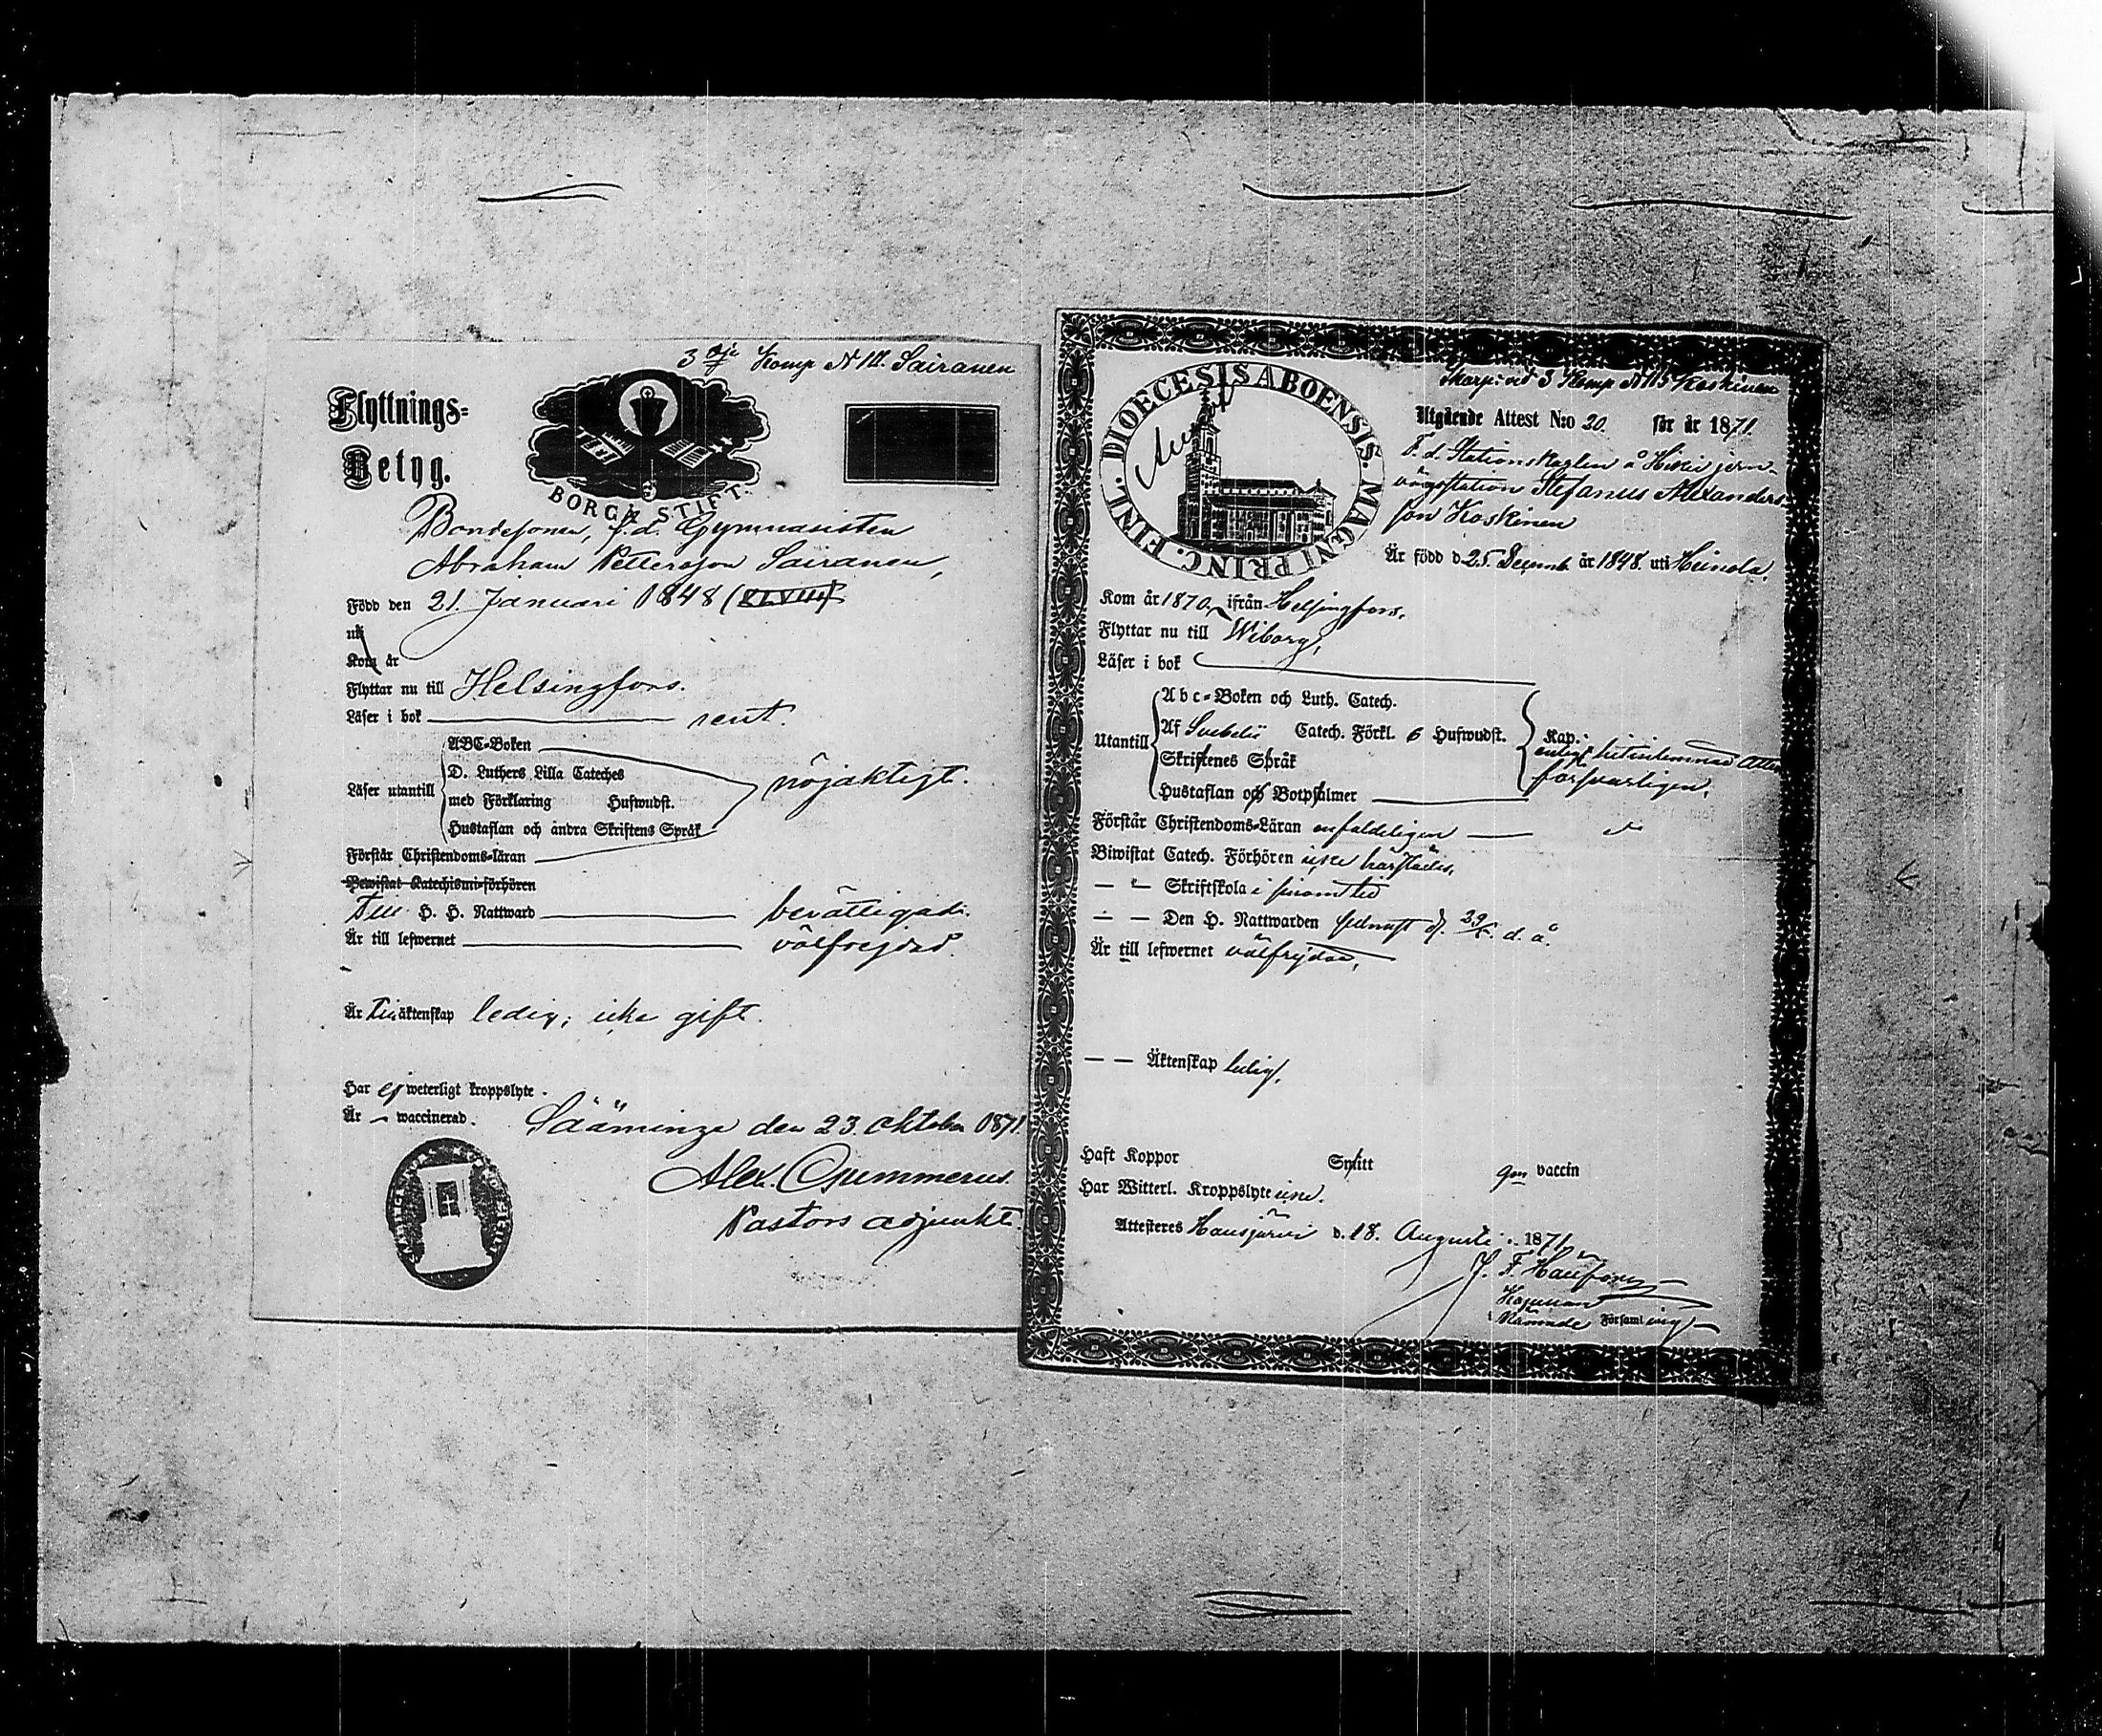 3dje Komp N 111. Sairanen
Flyttnings-
Betyg.
BORGÅ STIFT.
Bondesonen, f.d. Gymnasisten
Abraham Pettersson Sairanen,
Född den 21. Januari 1848 (XLVIII)
uti
Kom år
Flyttar nu till Helsingfors.
Läser i bok rent.
Läser utantill
ABC-Boken
D. Luthers Lilla Cateches
med Förklaring Hufwudst.
Hustaflan och andra Skriftens Språk
nöjaktigt.
Förstår Christendoms-läran
Bewistat Katechismi-förhören
Till H. H. Nattward berättigad.
Är till lefwernet välfrejdad.
Är till äktenskap ledig; icke gift.
Har ej weterligt kroppslyte.
Är – waccinerad.
Sääminge den 23. Oktober 1871.
Alex. Gummerus.
Pastors adjunkt.
Skarpt. vid 3 Komp N 115 Koskinen
DIOECESIS ABOENSIS. MAGNI PRINC. FINL.
Utgående Attest N:o 20. för år 1871.
F. d. Stationskarlen å Hikiä jern-
vägsstation Stefanus Alexanders-
son Koskinen
Är född d. 25. Decemb. år 1848. uti Heinola.
Kom år 1870, ifrån Helsingfors.
Flyttar nu till Wiborg,
Läser i bok
Utantill
Abc-Boken och Luth. Catech.
Af Svebelii Catech. Förkl. 6 Hufwudst.
Skriftenes Språk
Hustaflan och Botpsalmer
Kap.
enligt hitinlemnad Attest
försvarligen.
Förstår Christendoms-Läran enfaldeligen
Biwistat Catech. Förhören icke härstädes.
— " — Skriftskola i sinom tid
— — Den H. Nattwarden sednast d. d. å.
Är till lefwernet välfrejdad,
— — Äktenskap ledig,
Haft Koppor Smitt gm vaccin
Har Witterl. Kroppslyte icke.
Attesteres Hausjärvi d. 18. Augusti 1871.
Kapellan
Församling